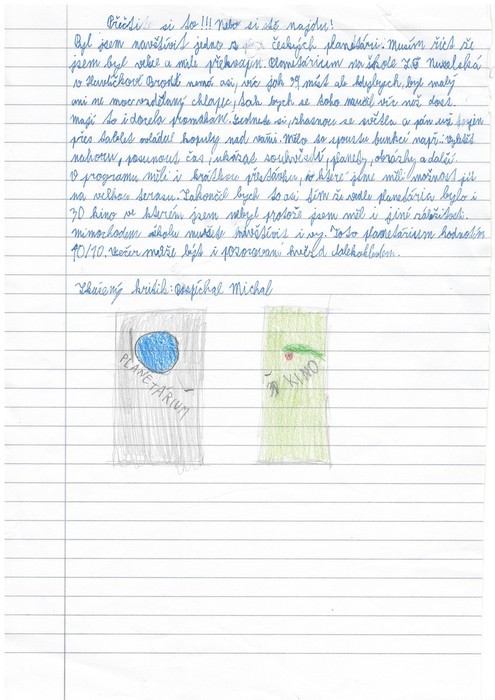 Přečtěte si to!!! Nebo si tě najdu!
Byl jsem navštívit jedno z českých planetárií. Musím říct že
jsem byl velice a mile překvapin. Planetárium na škole ZŠ Nuselská
v Havlíčkově Brodě nemá asi, víc jak 39 míst ale kdybych, byl malý
ani ne moc vzdělaný chlapec, tak bych se toho naučil víc než dost.
mají to i docela promakané. Sednete si, zhasnou se světla a pán už jenom
přes tablet ovládá kopuly nad vámi. Mělo to spoustu funkcí např:
nahoru, posunout čas, ukázat souhvězdí, planety, obrázky a další.
V programu měli i krátkou přestávku, ve které jsme měli možnost jít
na velkou terasu. Zakončil bych to asi tím že vedle planetária bylo i
3D kino ve kterém jsem nebyl protože jsem měl i jiné záležitosti.
mimochodem školu můžete navštívit i vy. Toto planetárium hodnotím
10/10. Večer může být i pozorování hvězd dalekohledem.
Zkušený kritik: Dospíchal Michal
PLANETÁRIUM
3D KINO